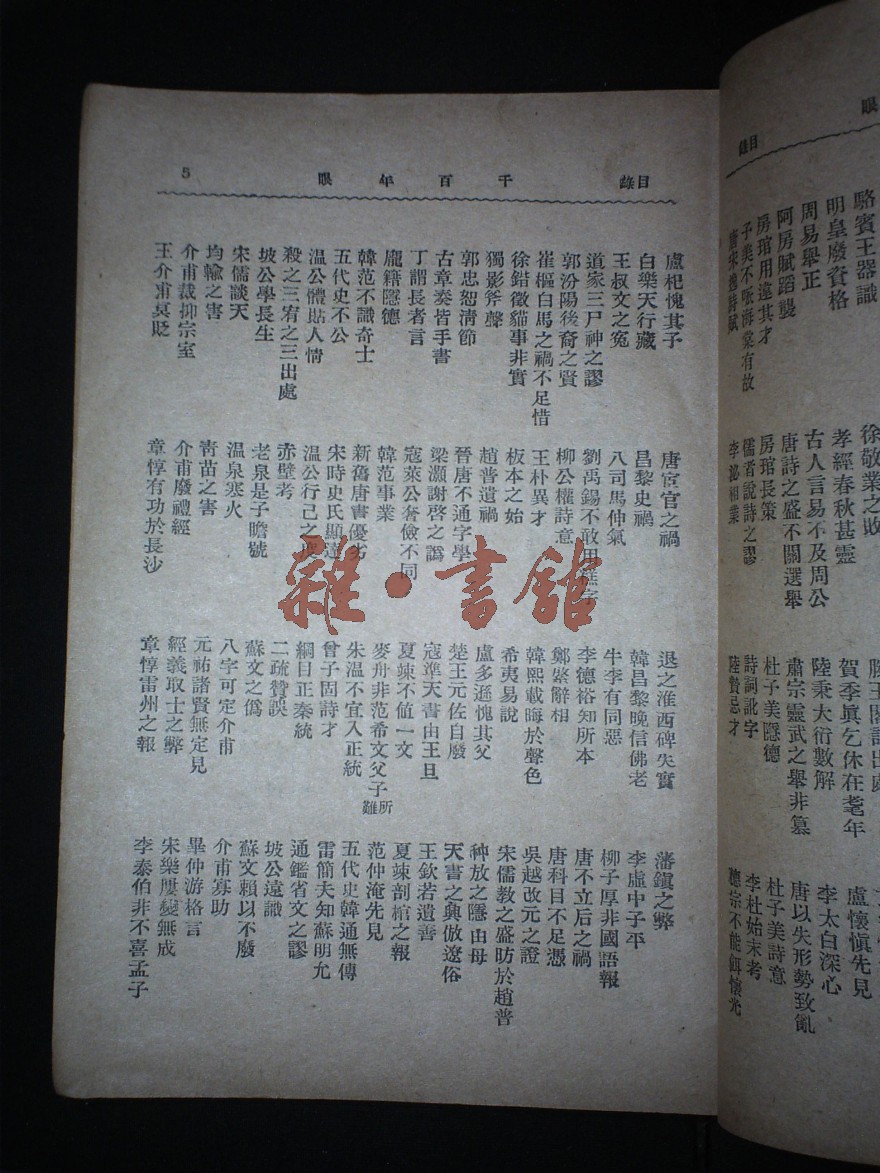 眼
目錄
駱賓王器識
徐敬業之敗
明皇廢資格
孝經春秋甚靈
賀季眞乞休在耄年
盧懷愼先見
周易舉正
古人言易不及周公
陸秉大衍數解
李太白深心
阿房賦蹈襲
唐詩之盛不關選舉
肅宗靈武之舉非篡
唐以失形勢致亂
房琯用違其才
房琯長策
杜子美隱德
杜子美詩意
子美不咏海棠有故
儒者說詩之謬
詩詞訛字
李杜始末考
唐宋逸詩賦
李泌相業
陸贄忌才
德宗不能餌懷光
目錄 千百年眼 5
盧杞愧其子
唐宦官之禍
退之淮西碑失實
藩鎭之弊
白樂天行藏
昌黎史禍
韓昌黎晚信佛老
李虛中子平
王叔文之冤
八司馬伸氣
牛李有同惡
柳子厚非國語報
道家三尸神之謬
劉禹錫不敢用餻字
李德裕知所本
唐不立后之禍
郭汾陽後裔之賢
柳公權詩意
鄭綮辭相
唐科目不足憑
崔樞白馬之禍不足惜
王朴異才
韓熙載晦於聲色
吳越改元之證
徐鍇徵貓事非實
板本之始
希夷易說
宋儒教之盛昉於趙普
獨影斧聲
趙普遺禍
盧多遜愧其父
种放之隱由母
郭忠恕淸節
晉唐不通字學
楚王元佐自廢
天書之興倣遼俗
古章奏皆手書
梁灝謝啓之譌
寇準天書由王旦
王欽若遺善
丁謂長者言
寇萊公奢儉不同
夏竦不值一文
夏竦剖棺之報
龐籍隱德
韓范事業
麥舟非范希文父子所難
范仲淹先見
韓范不識奇士
新舊唐書優劣
朱溫不宜入正統
五代史韓通無傳
五代史不公
宋時史氏顯達
曾子固詩才
雷簡夫知蘇明允
溫公體貼人情
溫公行己之度
綱目正秦統
通鑑省文之謬
殺之三宥之三出處
赤壁考
二疏贊誤
坡公遠識
坡公學長生
老泉是子瞻號
蘇文之僞
蘇文賴以不廢
宋儒談天
溫泉寒火
八字可定介甫
介甫寡助
均輸之害
靑苗之害
元祐諸賢無定見
畢仲游格言
介甫裁抑宗室
介甫廢禮經
經義取士之弊
宋樂屢變無成
王介甫冥貶
章惇有功於長沙
章惇雷州之報
李泰伯非不喜孟子
雜·書館